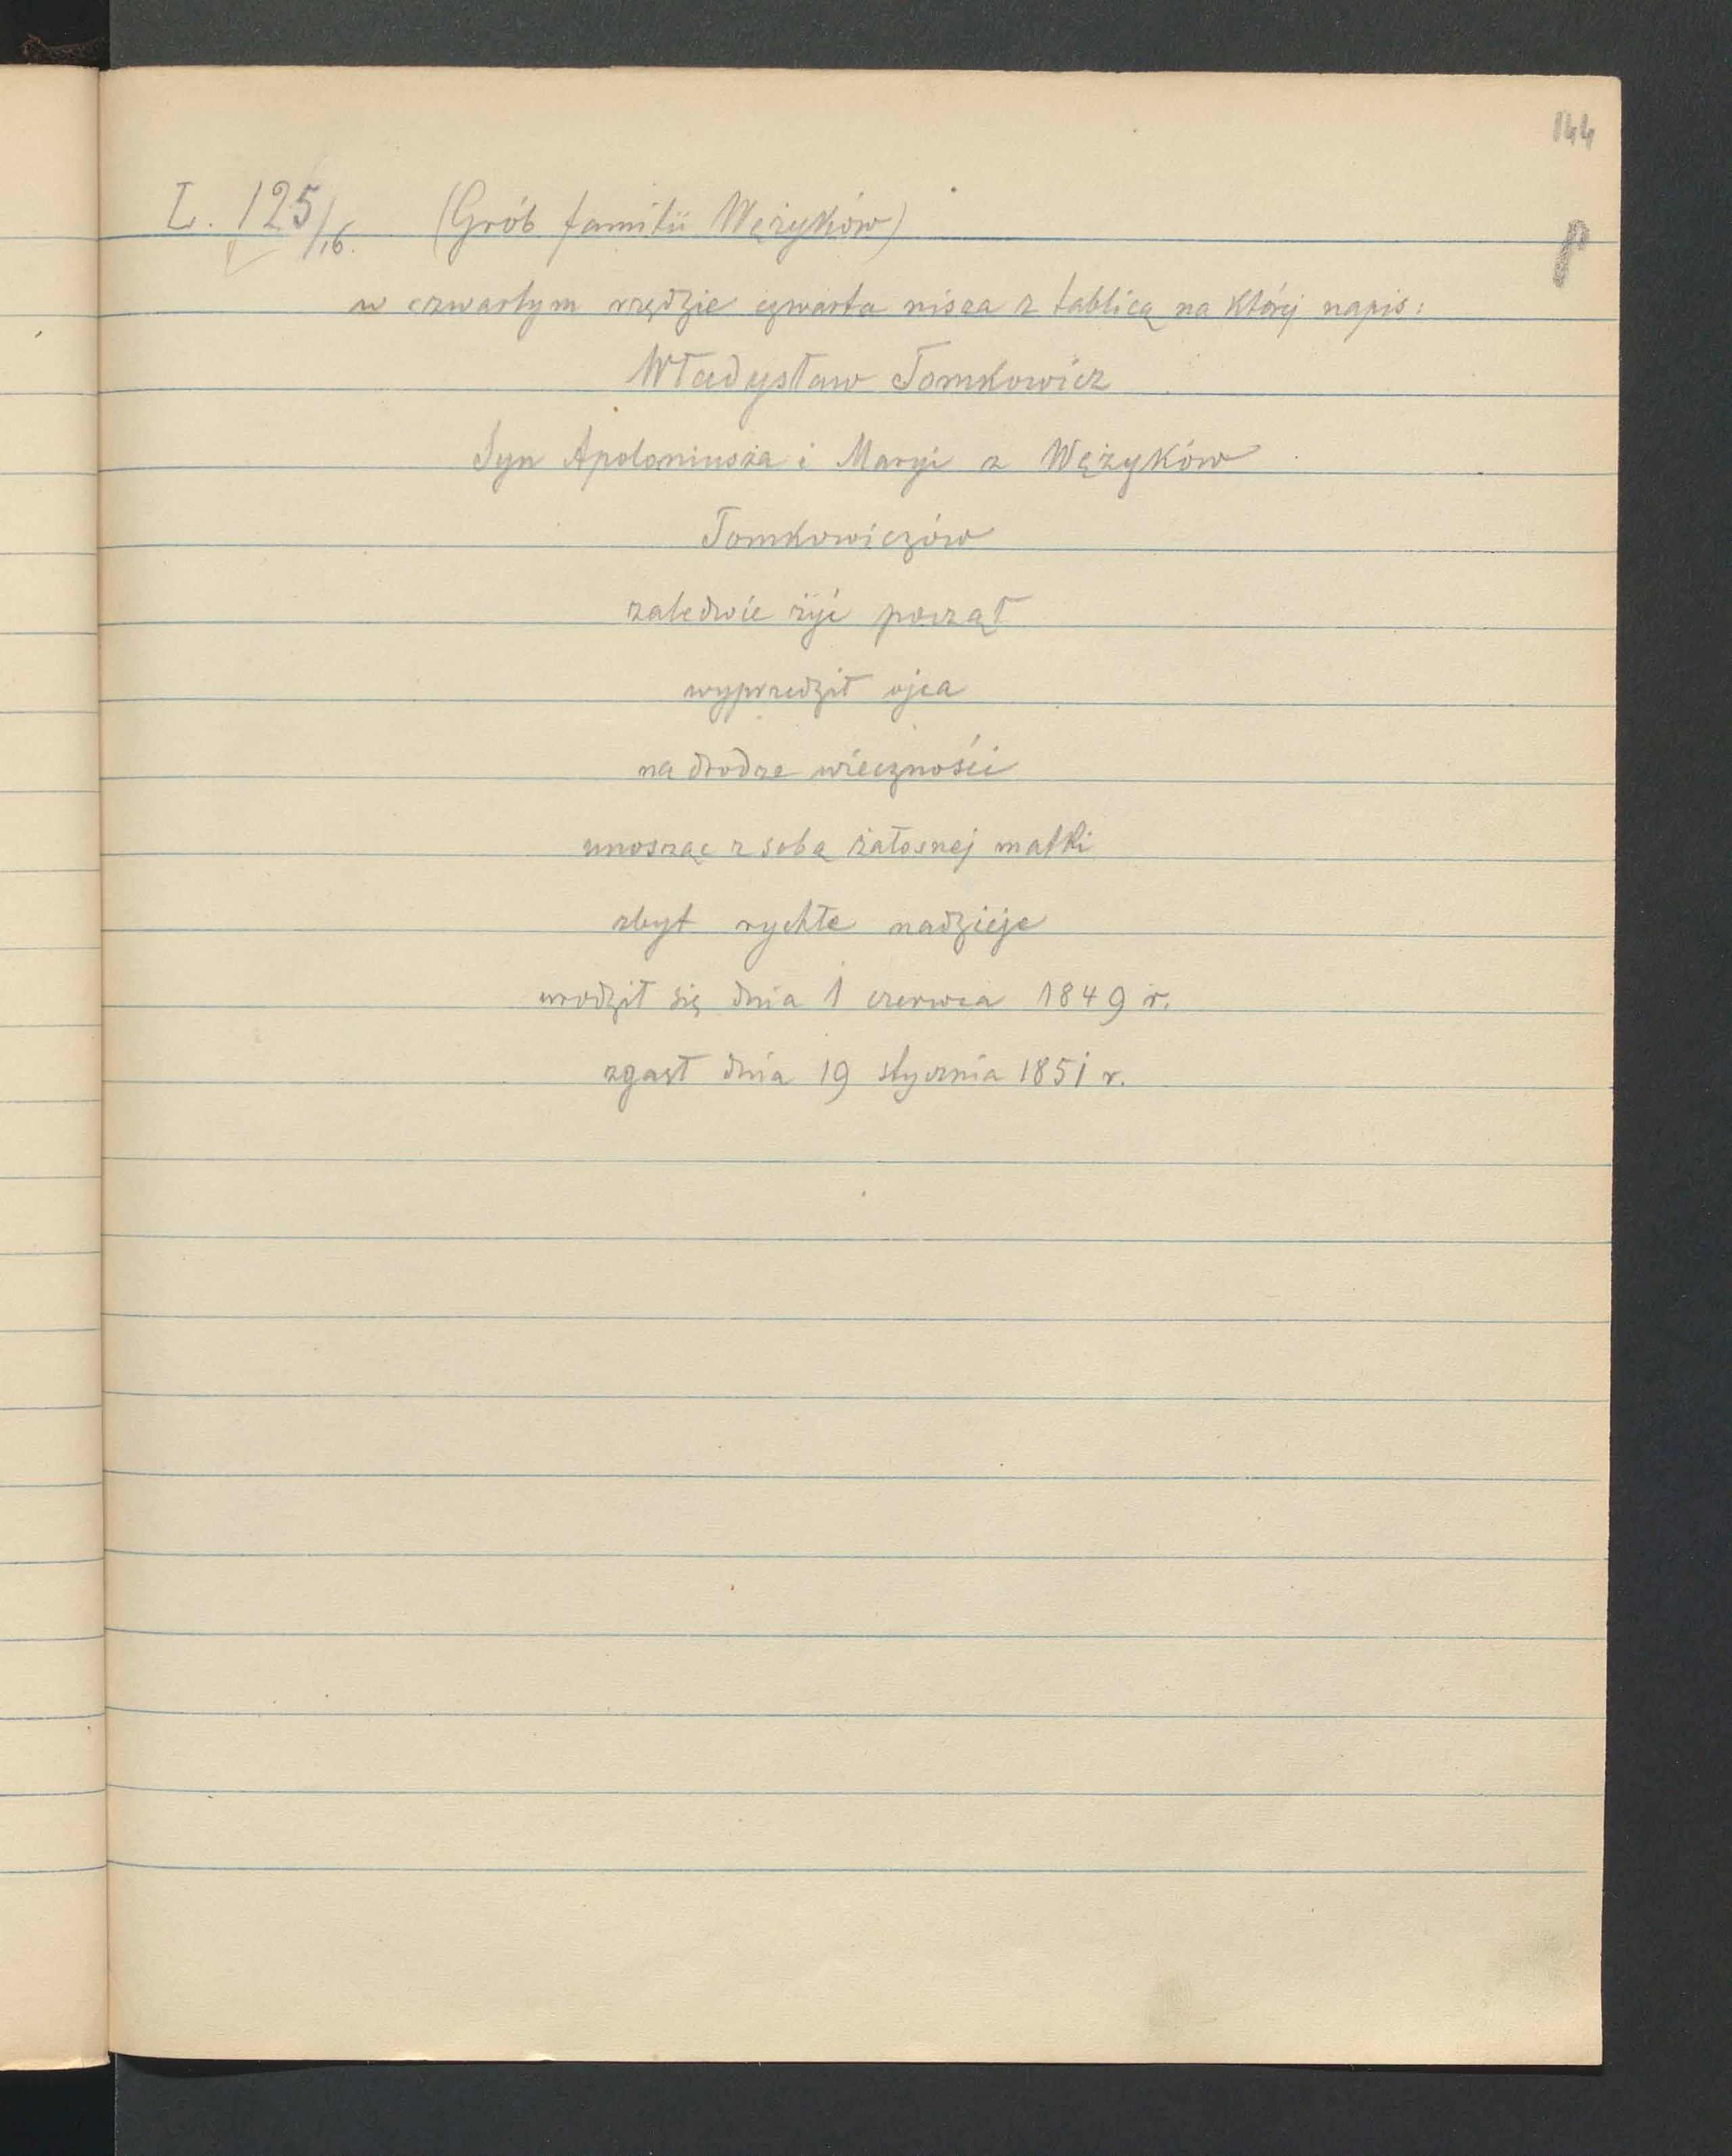 144
L. 125/16. (Grób familii Wężyków)
P
w czwartym rzędzie czwarta nisza z tablicą na której napis:
Władysław Tomkowicz
Syn Apoloniusza i Maryi z Wężyków
Tomkowiczów
zaledwie żyć począł
wyprzedził ojca
na drodze wieczności
unosząc z sobą żałosnej matki
zbyt rychłe nadzieje
urodził się dnia 1 czerwca 1849 r.
zgasł dnia 19 stycznia 1851 r.